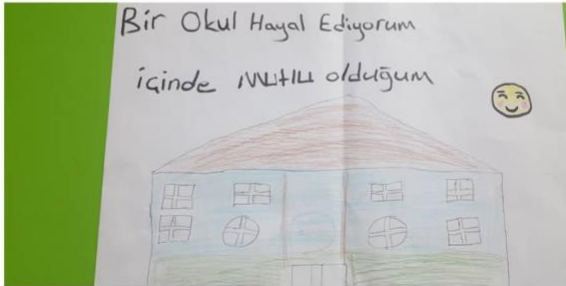 Bir Okul Hayal Ediyorum
içinde mutlu olduğum